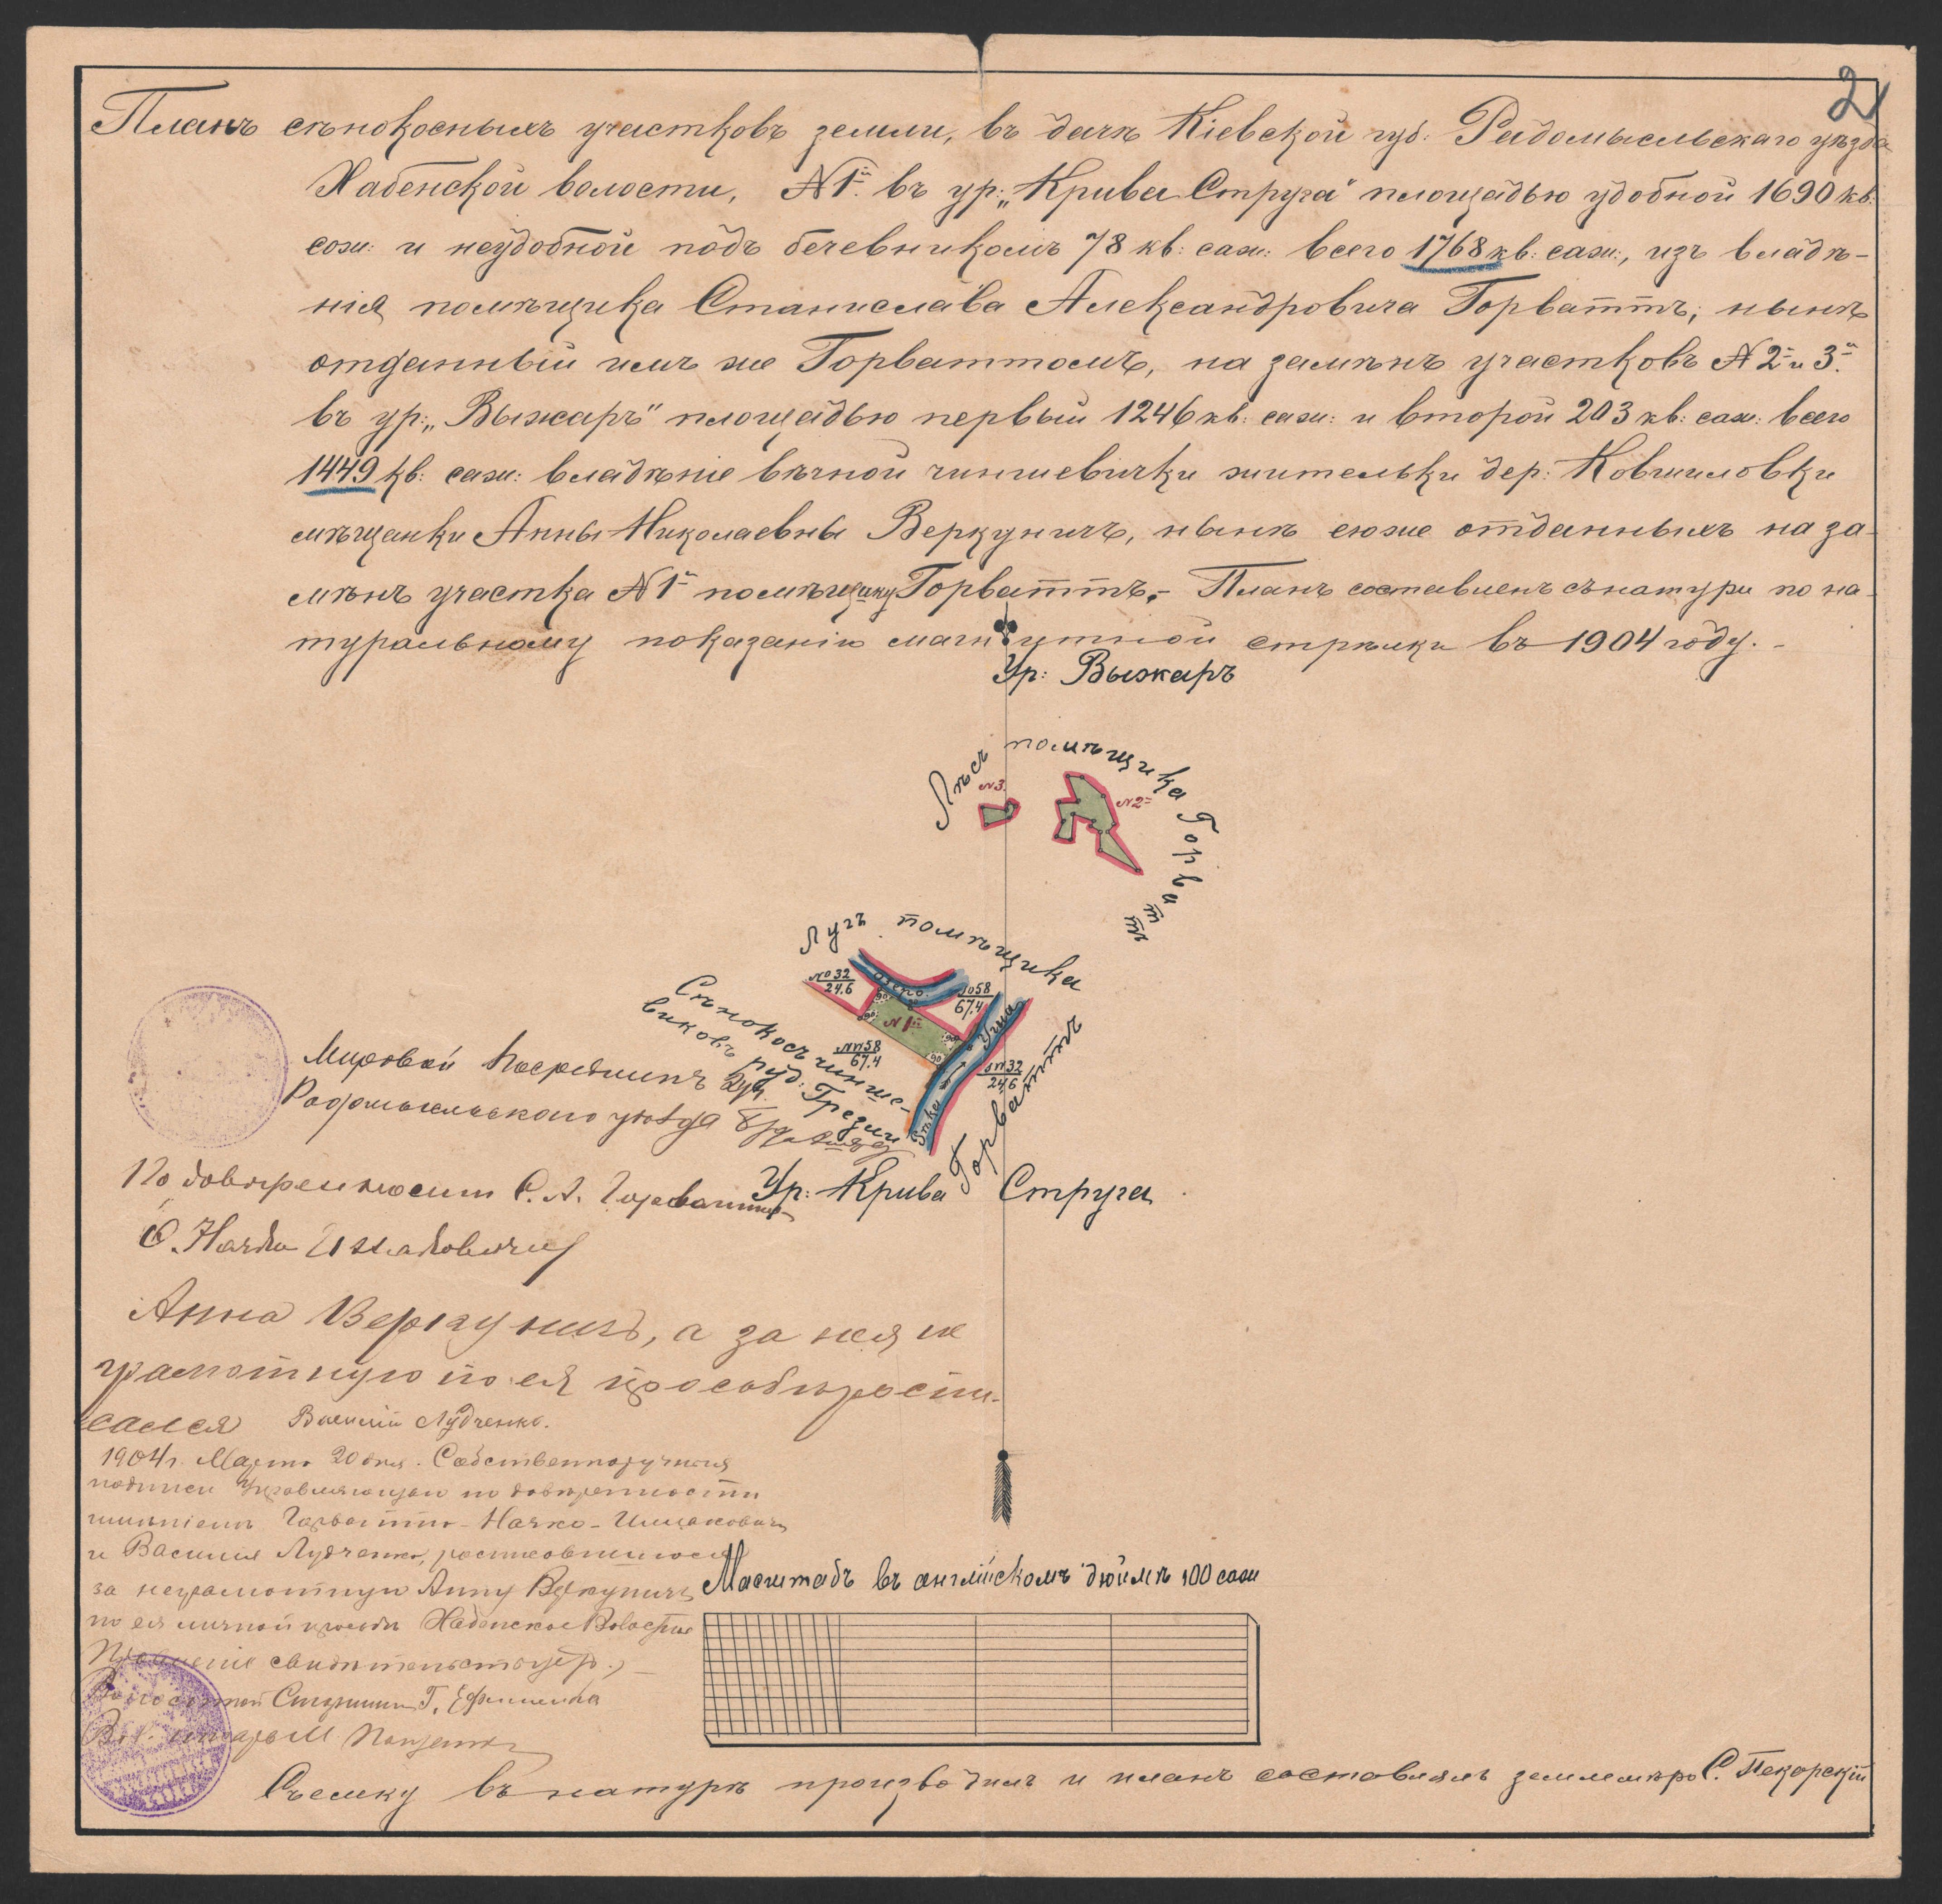 2
Планъ сѣнокосныхъ участковъ земли, въ дачѣ Кіевской губ: Радомысльскаго уѣзда
Хабенской волости, №1й въ ур: „Крива Струга" площадью удобной 1690 кв:
саж: и неудобной подъ бечевникомъ 78 кв: саж: всего 1768 кв: саж:, изъ владѣ-
нія помѣщика Станислава Александровича Горваттъ; нынѣ
отданный имъ же Горваттомъ, на замѣнъ участковъ №2й и 3й
въ ур: „Выжаръ" площадью первый 1246 кв: саж: и второй 203 кв: саж: всего
1449 кв: саж: владѣніе вѣчной чиншевички жительки дер: Ковшиловки
мѣщанки Анны Николаевны Веркуничъ, нынѣ ею же отданныхъ на за-
мѣнъ участка №1й помѣщику Горваттъ.- Планъ составленъ съ натури по на-
туральному показанію магнитной стрѣлки въ 1904 году.-
Ур: Выжаръ
Лѣсъ помѣщика Горваттъ
№3
№2й
Лугъ помѣщика
Горваттъ
№32
24.6
Озеро.
№58
67.4
№1й
90
90
90
90
№58
67.4
№32
24.6
Рѣка Уша
Сѣнокосъ чинше-
виковъ руд: Грезли
Ур: Крива Струга
Мировой Посредникъ 2 уч.
Радомысльскаго уѣзда
По довѣренности С. А. Горватта
С. Начко
Анна Веркуничъ, а за нея не
грамотную по ея просьбѣ роспи-
сался Василій Лудченко.
1904 г. Марта 20 дня. Собственноручныя
подписи Управляющаго по довѣренности
имѣніемъ Горватта - Начко -
и Василія Лудченко, росписавшагося
за неграмотную Анну Веркуничъ
по ея личной просьбѣ Хабенское Волостное
Правленіе свидѣтельствуетъ.
Волостной Старшина Г. Ефименко
Масштабъ въ англійскомъ дюймѣ 100 саж
Съемку въ натурѣ производилъ и планъ составлялъ землемѣръ С. Пекарскій